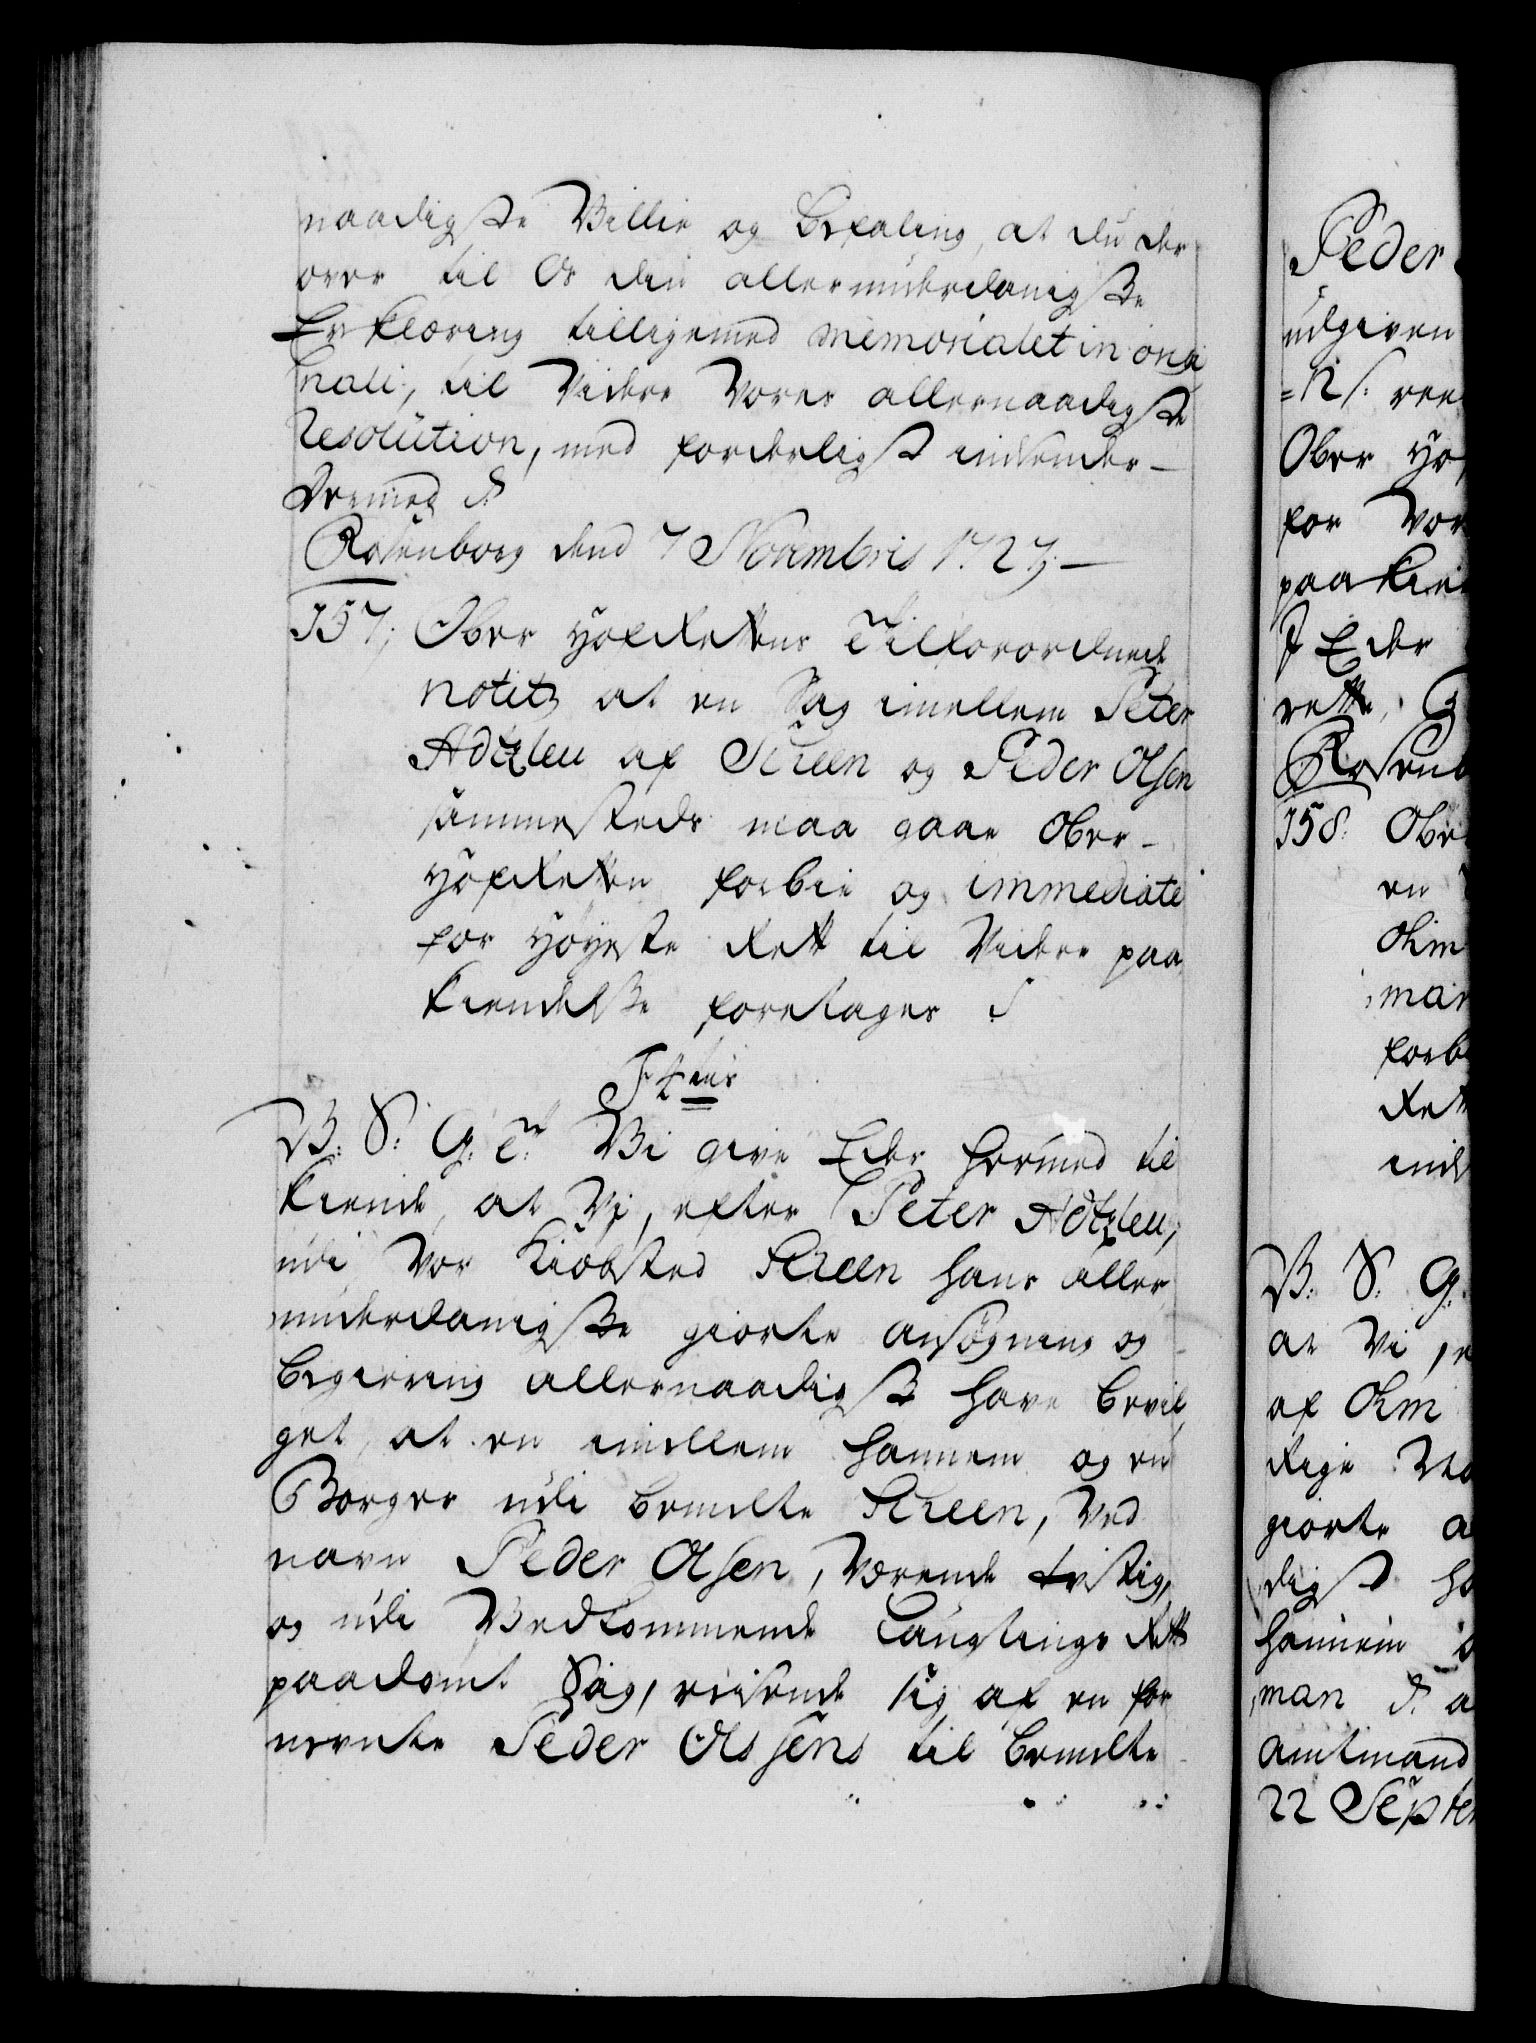 naadigste Villie og Befaling, at du der
over til Os din allerunderdanigste
Erklæring tilligemed memorialet in origi
nali, til Videre Vores allernaadigste
Resolution, med forderligst indsender –
Dermed
Rosenborg dend 7 Novembris 1727. –
157, Ober Hof Rettens Tilforordnede
notitz at en Sag imellem Peter
Adtzleu af Skeen og Peder Olsen
sammesteds maa gaae Ober –
Hof Retten forbie og immediate
for Høyeste Rett til Videre paa
kiendelse foretages
F 4tus
V: S: G: Vi give Eder hermed til
kiende, at Vi, efter Peter Adtzleu,
udi Vor Kiøbsted Skeen hans aller
underdanigste giorte ansøgning og
begiering allernaadigst have bevil
get, at en imellem hannem og en
Borger udi bemelte Skeen, ved
navn Peder Olsen, værende tvistig,
og udi Vedkommende Laugtings Rett
paadømt Sag, reisende sig af en for
nevnte Peder Olssens til bemelte
Peder
udgiven
Ober Hof
for Vor
paakien
I Eder
rette, G
Rosenb
158: Obe
en
mar
forb
Rett
ind
V: S: G:
at Vi, e
af
giorte a
digst ha
hannem o
man a
Amtmand
22 Septem